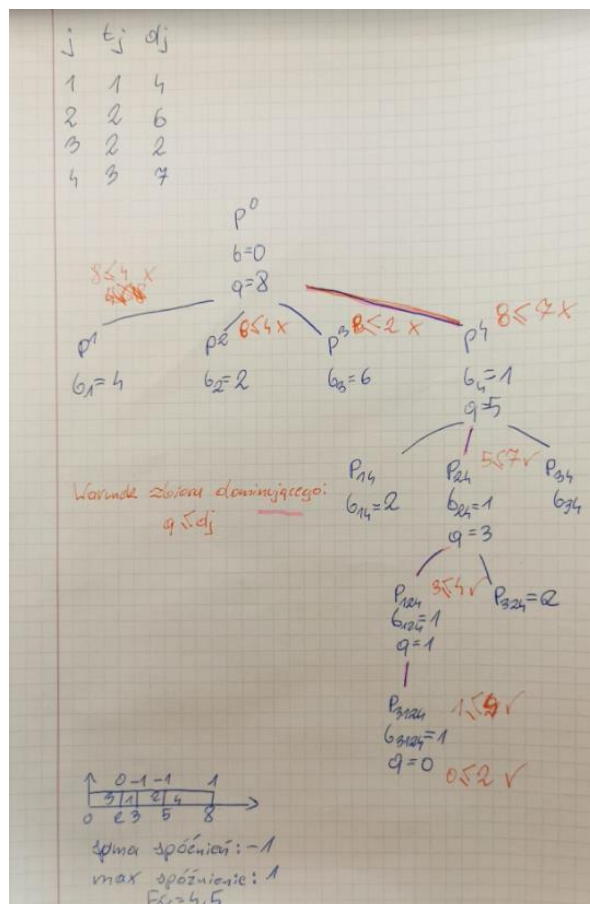 j tj dj
1 1 4
2 2 6
3 2 2
4 3 7
p⁰
б=0
q=8
8≤4 x
p¹
б₁=4
p² 8≤4 x
б₂=2
p³ 8≤2 x
б₃=6
p⁴ 8≤7 x
б₄=1
q=5
P₁₄
б₁₄=2
P₂₄ 5≤7 ✓
б₂₄=1
q=3
P₃₄
б₃₄
Warunek zbioru dominującego:
q≤dj
P₁₂₄ 3≤4 ✓
б₁₂₄=1
q=1
P₃₂₄=2
P₃₁₂₄ ✓
б₃₁₂₄=1
q=0 0≤2 ✓
0 -1 -1 1
3 1 2 4
0 2 3 5 8
suma spóźnień: -1
max spóźnienie: 1